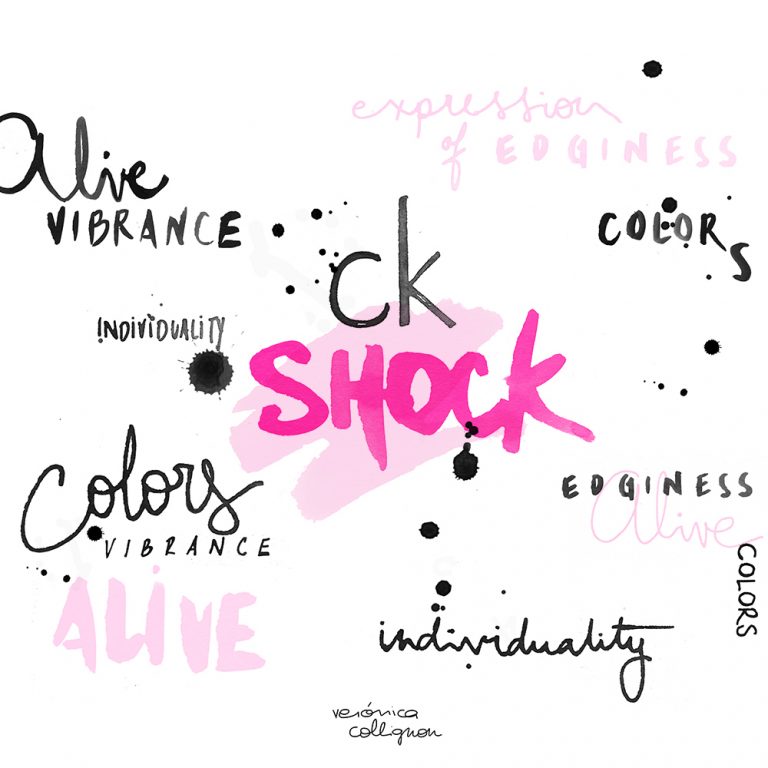 expression
of EDGINESS
Alive
VIBRANCE
COLORS
ck
INDIVIDUALITY
SHOCK
Colors
VIBRANCE
EDGINESS
Alive
COLORS
ALIVE
individuality
verónica
collignon